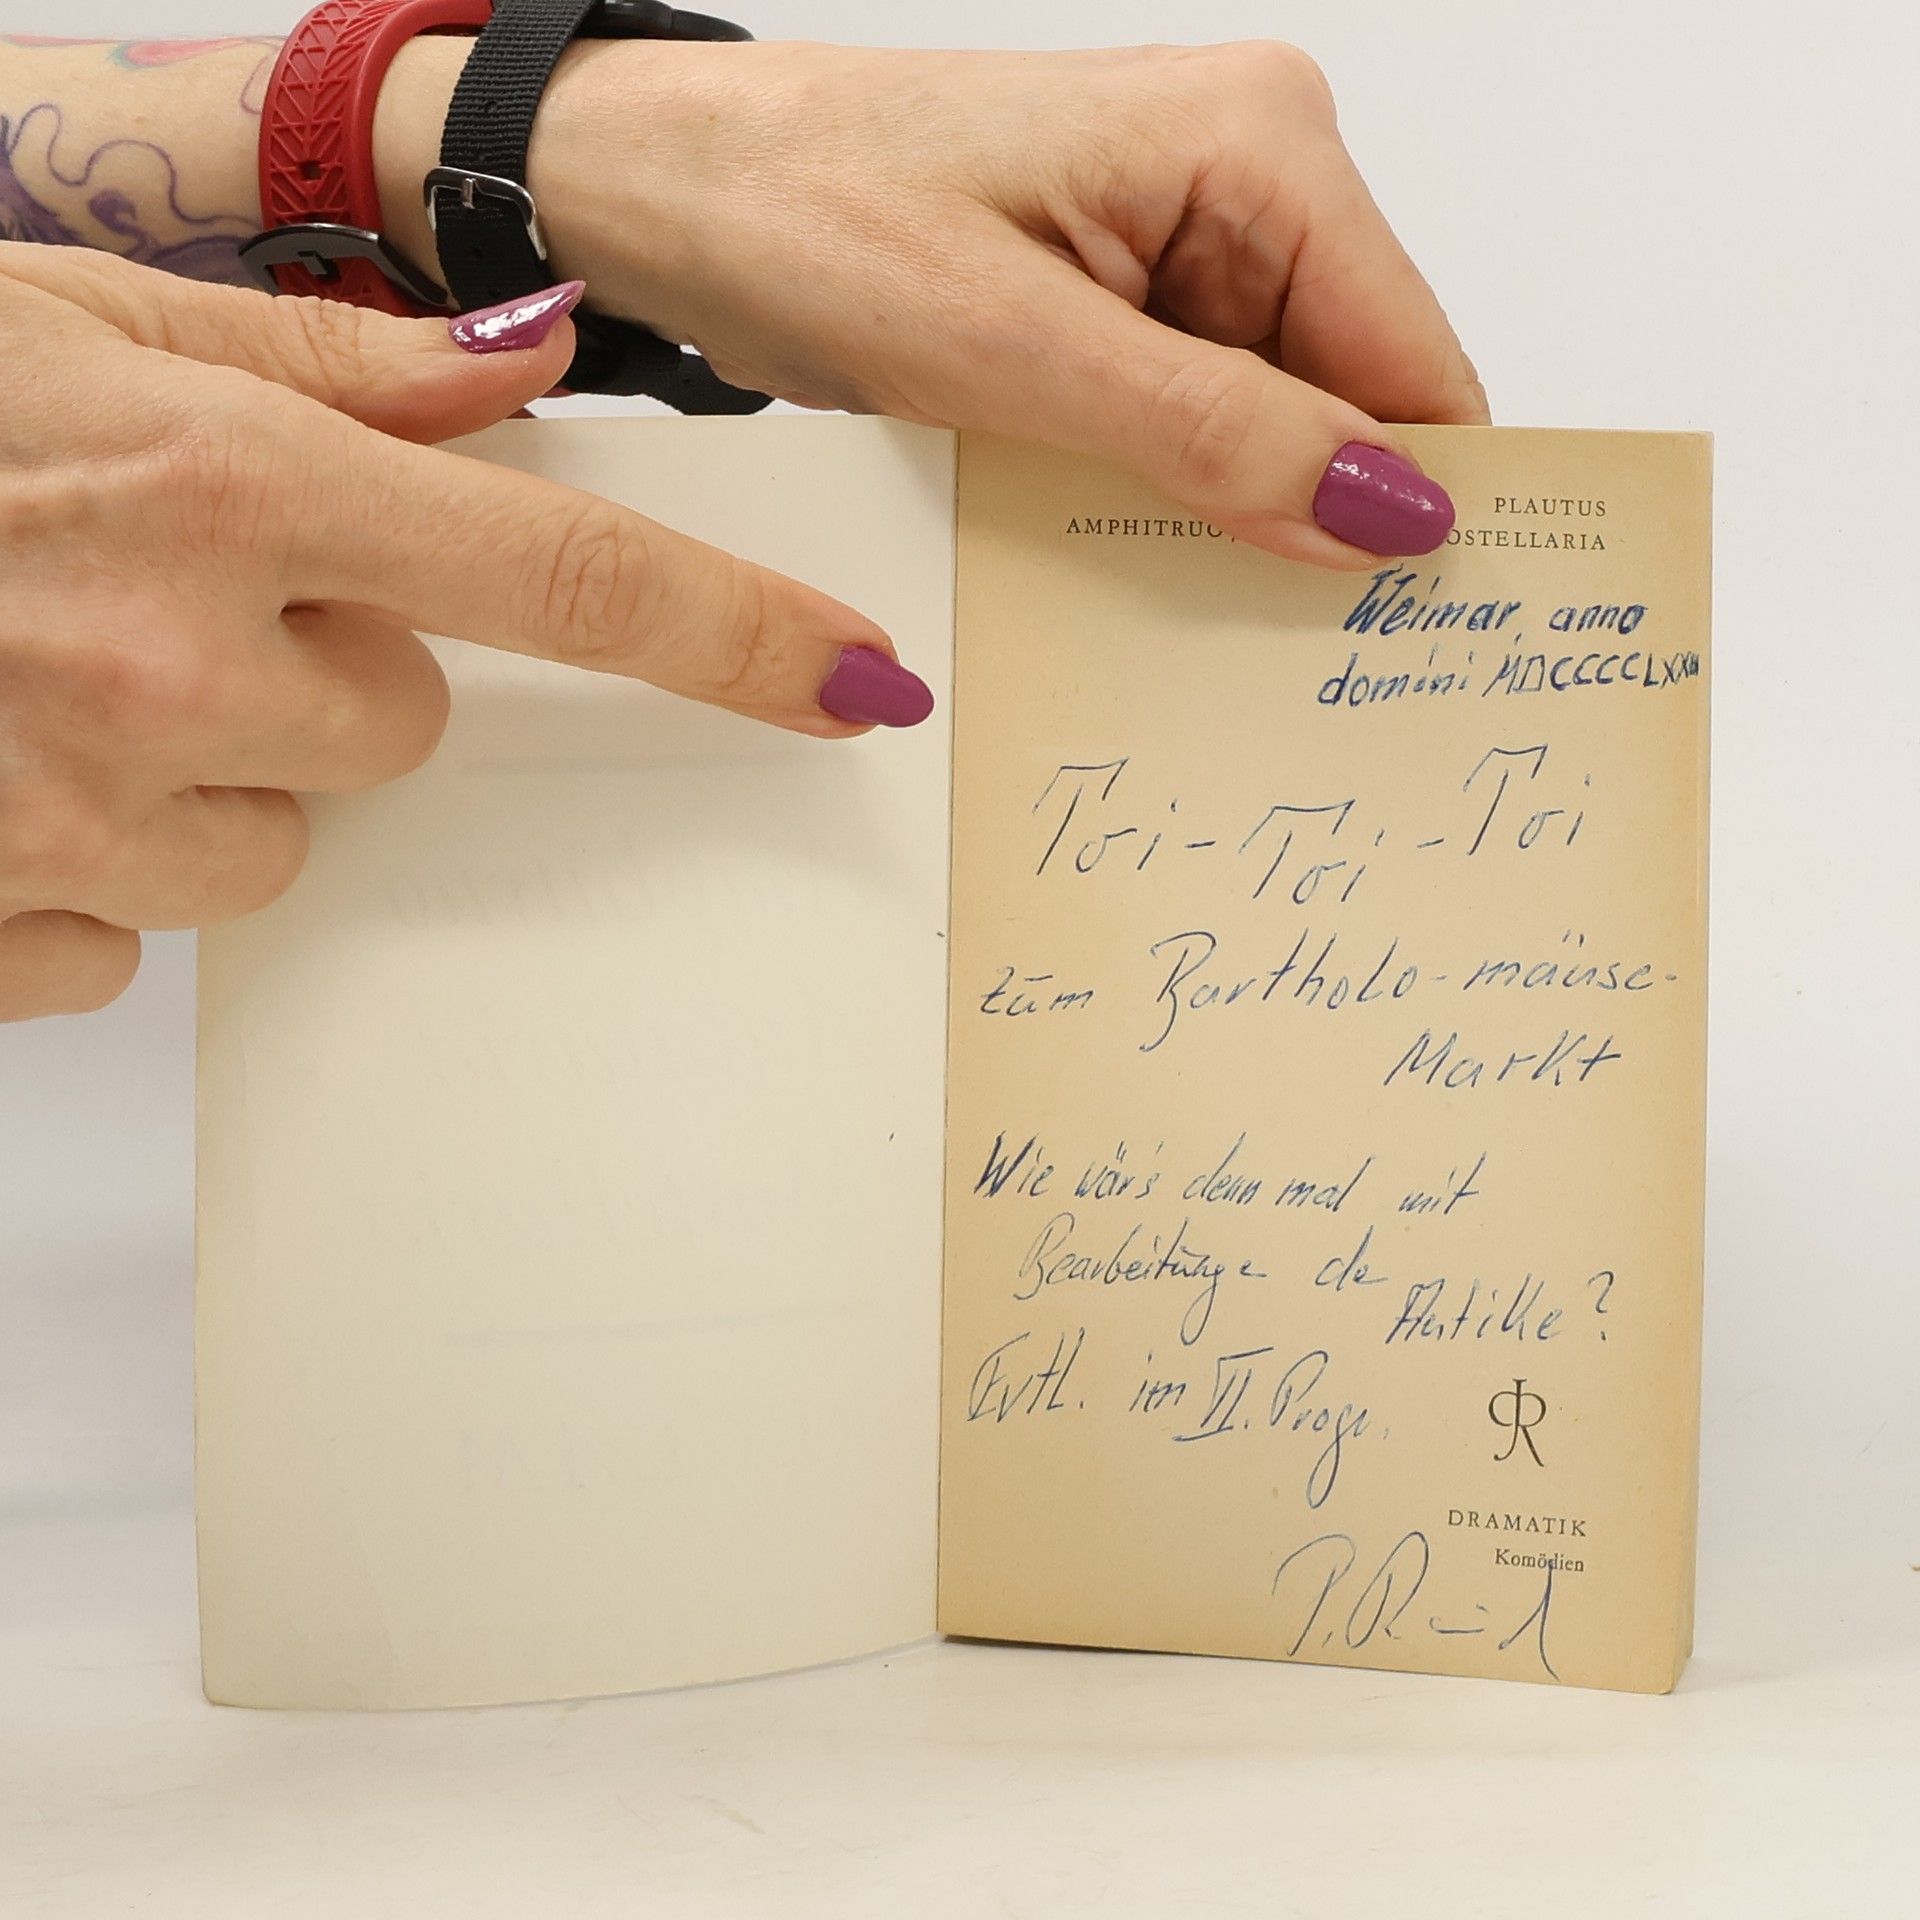 PLAUTUS
AMPHITRUO OSTELLARIA
Weimar, anno
domini MDCCCCLXXIII
Toi-Toi-Toi
zum Bartholo-mäuse-
Markt
Wie wär's denn mal mit
Bearbeitunge de
Antike?
Evtl. im VI. Progr.
DRAMATIK
Komödien